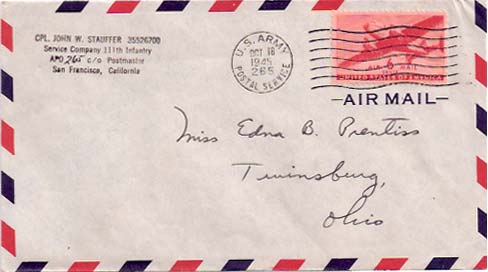 CPL. JOHN W. STAUFFER 35526700
Service Company 111th Infantry
APO 265 c/o Postmaster
San Francisco, California
U.S. ARMY
OCT 18
1945
265
POSTAL SERVICE
AIR 6¢ MAIL
UNITED STATES OF AMERICA
AIR MAIL
Miss Edna B. Prentiss
Twinsburg,
Ohio